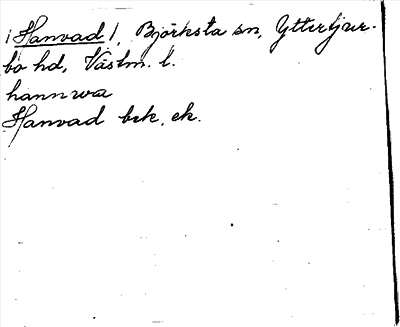 /Hanvad/, Björksta sn, Yttertjur-
bo hd, Västm. l.
hannwa
Hanvad bek. ek.